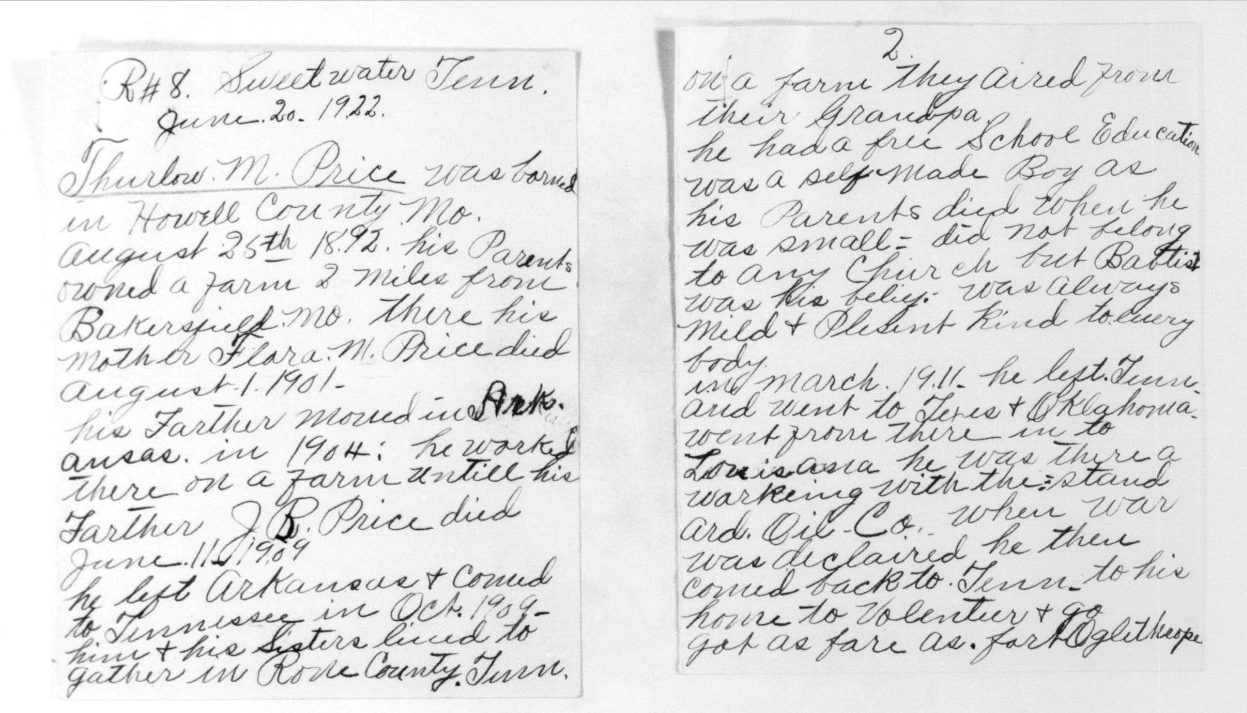 R#8. Sweetwater Tenn.
June. 20. 1922.
Thurlow. M. Price was borned
in Howell County Mo.
August 25th 1892. his Parents
owned a farm 2 miles from
Bakersfield. Mo. there his
Mother Flora. M. Price died
August. 1. 1901-
his Farther moved in Ark.
ansas. in 1904: he worked
there on a farm untill his
Farther J. B. Price died
June. 11. 1909
he left Arkansas & comed
to Tennessee in Oct. 1909-
him & his Sisters lived to
gather in Rone County. Tenn.
2.
on a farm they aired from
their Grandpa.
he had a free School Education
was a self made Boy as
his Parents died when he
was small = did not belong
to any Church but Babtist
was his belief. was always
Mild & Plesent Kind to every
body.
in march. 1911. he left. Tenn.
and went to Texes & Oklahoma.
went from there in to
Louisana he was there a
workeing with the = stand
ard. Oil-Co. when war
was declaired he then
comed back to. Tenn- to his
home to Volenteer & go
got as fare as. fort Oglethrope